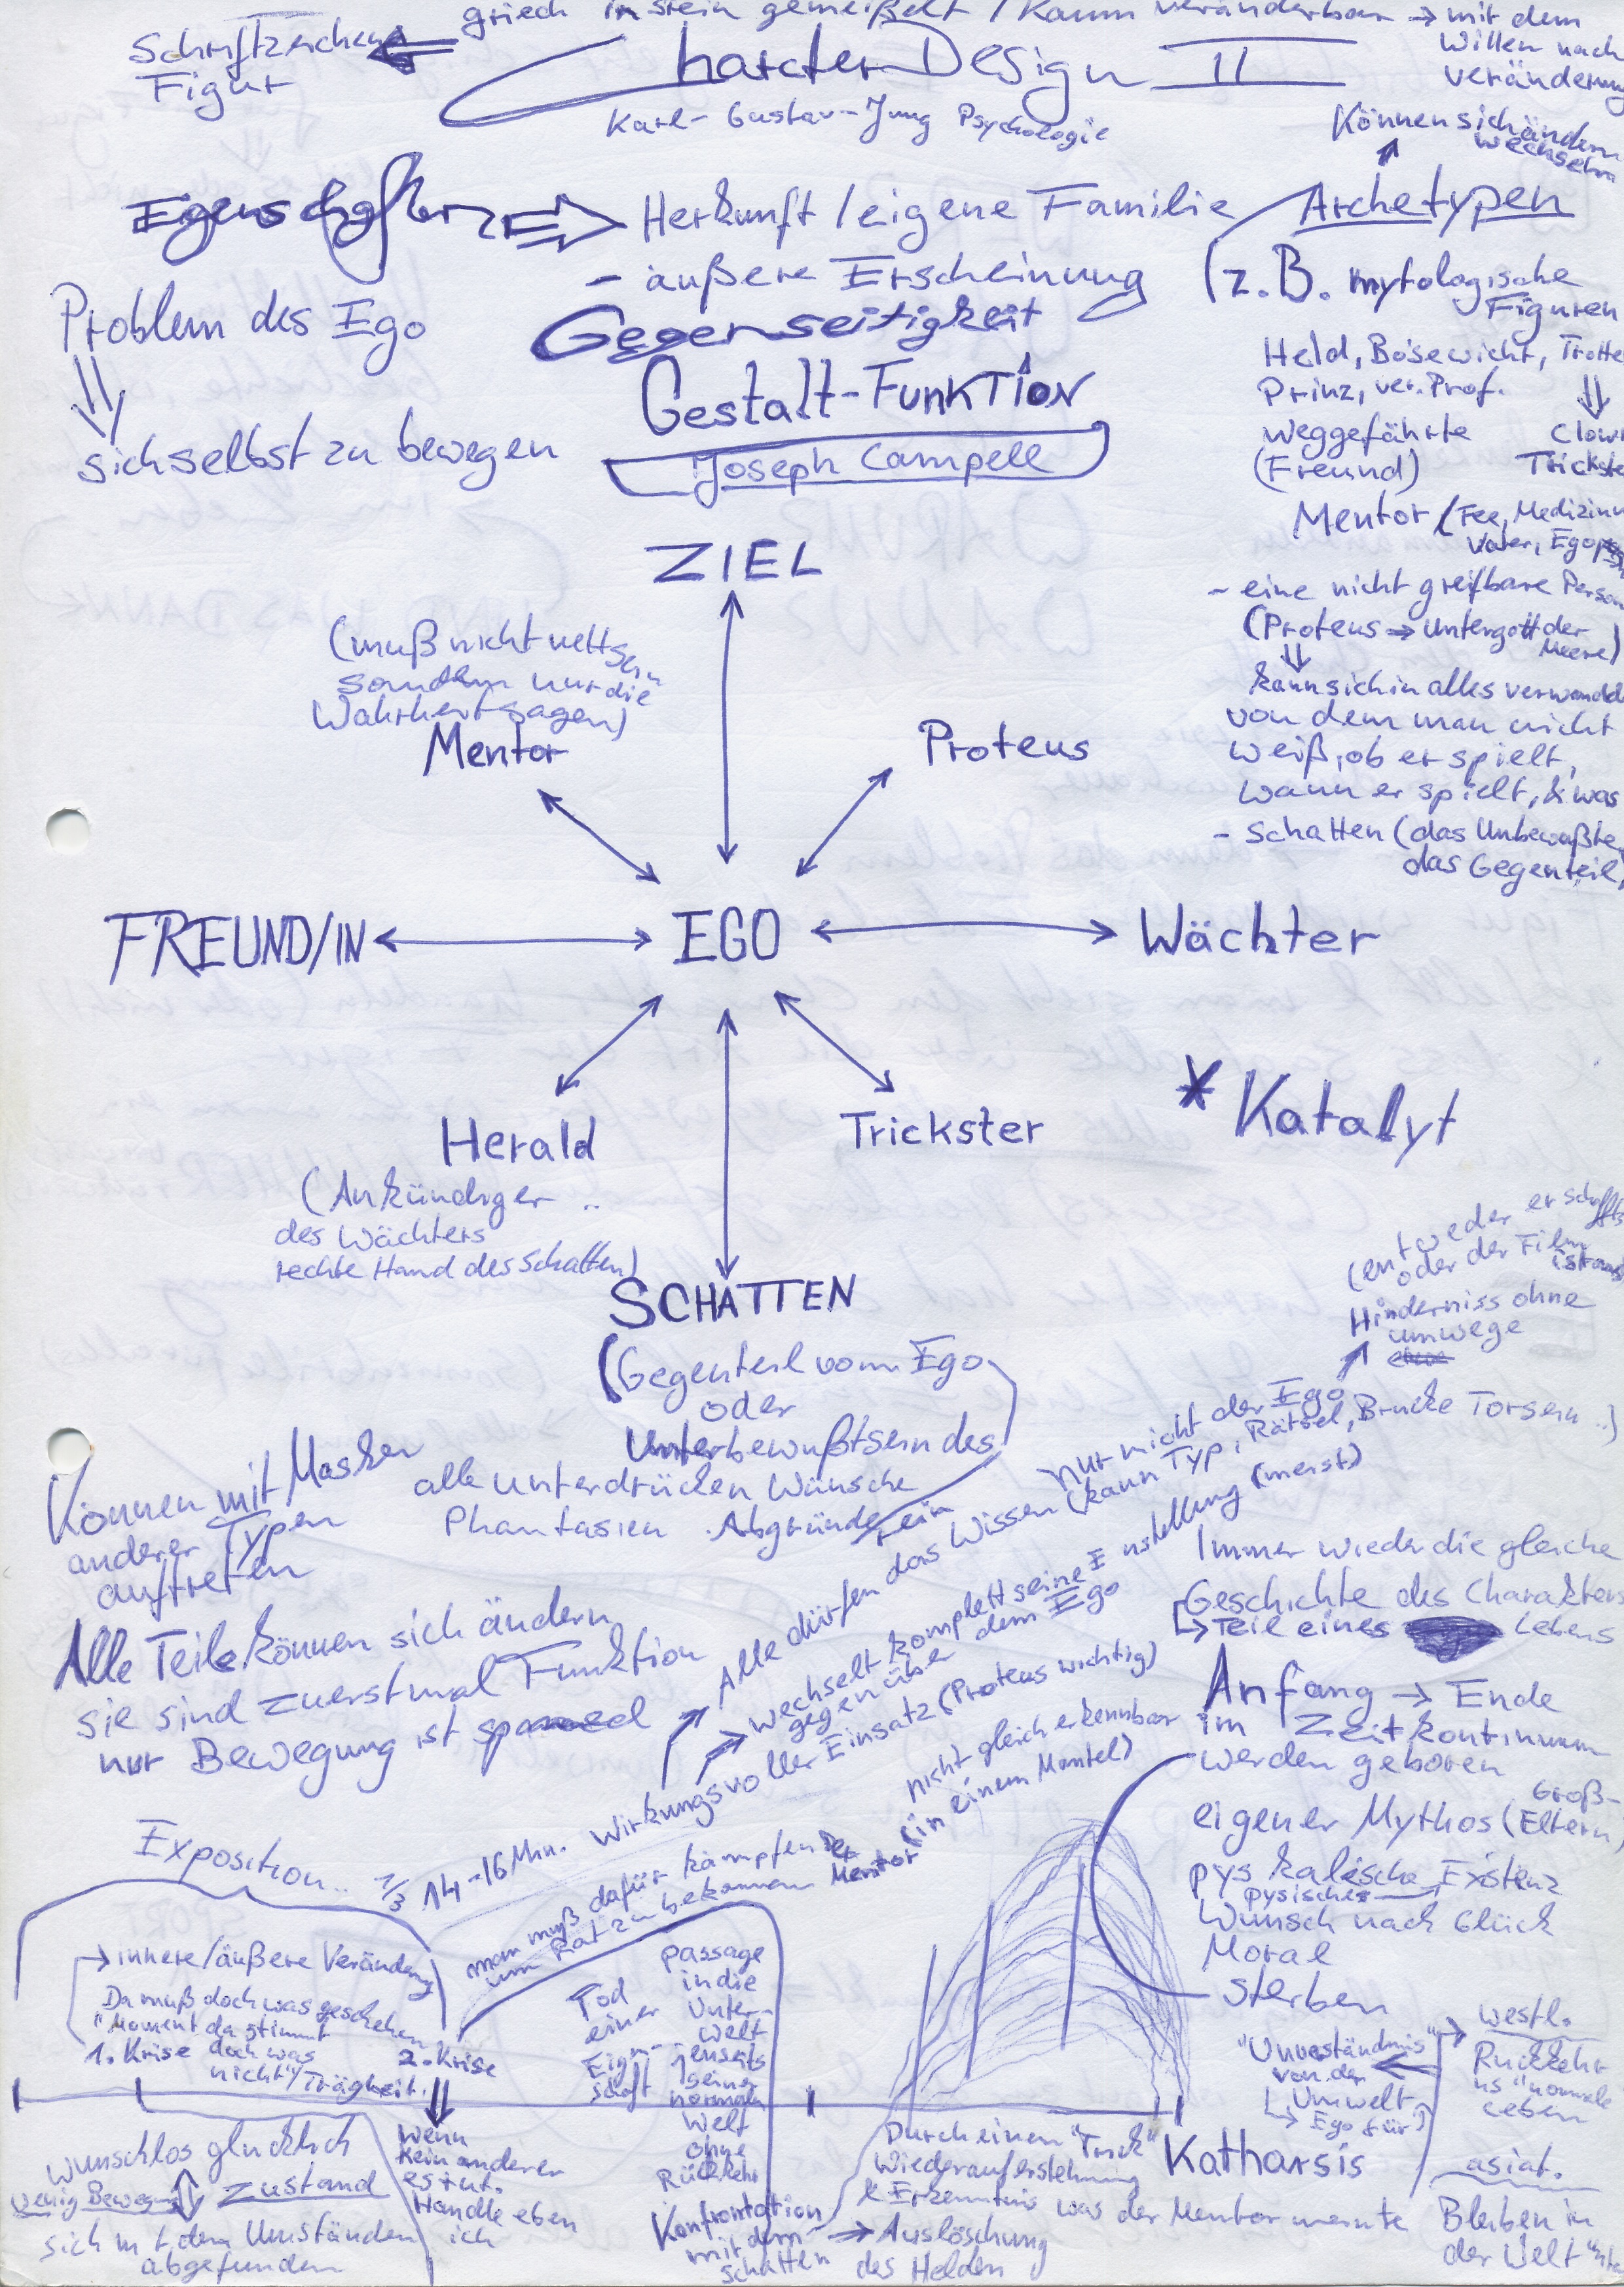 griech in stein gemeißelt / kaum veränderbar → mit dem
Willen nach
Veränderung
Schriftzeichen
Figur
Charcter Design II
Karl-Gustav-Jung Psychologie
Können sich ändern
wechseln
Eigenschaften ⇒ Herkunft / eigene Familie
- äußere Erscheinung
Gegenseitigkeit
Gestalt-Funktion
Joseph Campell
Problem des Ego
sich selbst zu bewegen
Archetypen
(z.B. mytologische
Figuren
Held, Bösewicht, Trotte
Prinz, ver. Prof.
Weggefährte
(Freund)
Clown
Trickste
Mentor (Fee, Medizinm
Vater, Ego
- eine nicht greifbare Person
(Proteus → Untergott der
Meere)
kann sich in alles verwandel
von dem man nicht
weiß, ob er spielt,
wann er spielt, & was
- Schatten (das Unbewußte,
das Gegenteil,
ZIEL
(muß nicht nett sein
sondern nur die
Wahrheit sagen)
Mentor
Proteus
FREUND/IN
EGO
Wächter
Herald
(Ankündiger
des Wächters
rechte Hand des Schatten)
Trickster
* Katalyt
SCHATTEN
(Gegenteil vom Ego
oder
Unterbewußtsein des
alle unterdrücken Wünsche
Phantasien Abgründe sein
(entweder er schaffts
oder der Film
ist aus
Hinderniss ohne
umwege
nur nicht der Ego
Alle dürfen das Wissen (kann Typ, Rätsel, Brücke Torsein..)
wechselt komplett seine Einstellung (meist)
gegenüber dem Ego
Können mit Masken
anderer Typen
auftreten
Alle Teile können sich ändern
sie sind zuerstmal Funktion
nur Bewegung ist
Immer wieder die gleiche
Geschichte des Charakters
↳ Teil eines Lebens
Anfang → Ende
im Zeitkontinuum
werden geboren
Groß-
eigener Mythos (Eltern)
pys kalische Existenz
pysische
Wunsch nach Glück
Moral
sterben
Exposition..
1/3 14-16 Min. Wirkungsvoller Einsatz (Proteus wichtig)
man muß dafür kämpfen
um Rat zu bekommen
der Mentor (in einem Mantel)
nicht gleich erkennbar
→ innere/äußere Veränderung
Da muß doch was geschehen
"Moment da stimmt
1. Krise doch was
nicht"/Trägheit.
2. Krise
Tod
einer
Eigen-
schaft
Passage
in die
Unter-
welt
jenseits
seiner
normalen
Welt
ohne
Rückkehr
Konfrontation
mit dem
Schatten
wunschlos glücklich
wenig Bewegung
Zustand
sich mit den Umständen
abgefunden
Wenn
kein anderer
es tut.
Handle eben
ich
Durch einen "Trick"
Wiederauferstehung
& Erkenntnis was der Mentor meinte
→ Auslöschung
des Helden
Katharsis
"Unverständnis"
von der
Umwelt
↳ Ego für
westl.
Rückkehr
ins "normale
Leben
asiat.
Bleiben in
der Welt